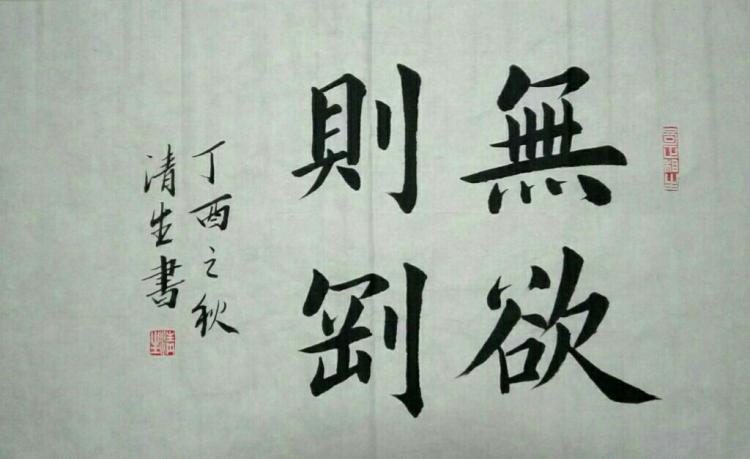 無欲
則剛
丁酉之秋
清生書
清生